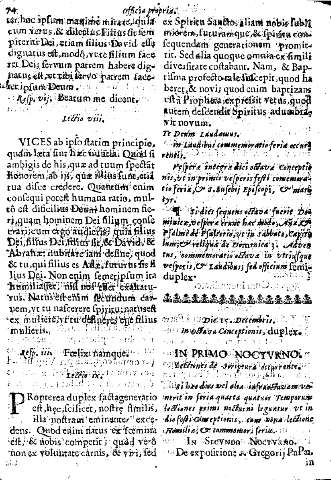 74 officia propria.
tur, hæc ipsum maximè mirare, quia
cum natus, & dilectus Filius sit sem-
piterni Dei, etiam filius David esse
dignatus est, modò, ut te filium face-
ret Dei; servum patrem habere dig-
natus est, ut tibi servo patrem face-
ret ipsum Deum.
Resp. vij. Beatum me dicent.
Lectio viii.
VICES ab ipso statim principio,
quàm læta sint hæc nuncia. Quòd si
ambigis de his, quæ ad tuum spectant
honorem, ab ijs, quæ illius sunt, etia
tua disce credere. Quantum enim
consequi potest humana ratio, mul-
tò est difficilius Deum hominem fie-
ri, quàm hominem Dei filium
cum ergo audieris, quia filius
Dei, filius sit, & David, &
Abrahæ: dubitare iam desine, quod
& tu, qui filius es Adæ, futurus sis fi-
lius Dei. Non enim semetipsum ita
humiliasset, nisi nos esset exaltatu-
rus. Natus est enim secundum car-
nem, ut tu nascerere spiritu; natus est
ex muliere, ut tu desineres esse filius
mulieris.
Resp. iii. Fœlix namque.
Lectio ix.
PRopterea duplex facta generatio
est, hæc, scilicet, nostræ similis,
illa nostram eminenter exce-
dens. Quòd enim natus ex fœmina
est, & nobis competit; quòd verò
non ex voluntate carnis, & viri, sed
ex Spiritu Sancto, aliam nobis subli-
miorem, futuramque, & spiritus con-
sequendam generationem promit-
tit. Sed alia quoque omnia ex simili
diversitate constabat. Nam, & Bap-
tisma profectò tale suscepit, quod ha-
beret, & novi; quod enim baptizans
est à Propheta expressit vetus, quod
autem descendit Spiritus adumbra-
vit novum.
Te Deum Laudamus.
In Laudibus commemoratio feriæ occur-
rentis.
Vesperæ integræ dici octava Conceptio-
nis, ut in primis vesperis festi commemo-
ratio feriæ, & s. Eusebij Episcopi, & mar-
tyr.
¶ Si dies sequens octava fuerit Do-
minica, vesperæ erunt hoc modo. Añæ, &
Psalmi de Psalterio, ut in sabbato, Capitu-
lum, & reliqua de Dominica 3. Adven-
tus, commemoratio octava in utrisque
vesperis, & Laudibus; sed officium semi-
duplex.
Die 15. Decembris.
In octava Conceptionis, duplex.
IN PRIMO NOCTVRNO.
Lectiones de scriptura occurrente.
Si hæc dies vel alia infra octavam ve-
nerit in feria quarta quatuor Temporum
lectiones primi nocturni leguntur ut in
die festi Conceptionis, cum nona lectione
Homiliæ, & commemor. feriæ.
IN SECVNDO NOCTVRNO.
De expositione s. Gregorij Pa Pæ
in